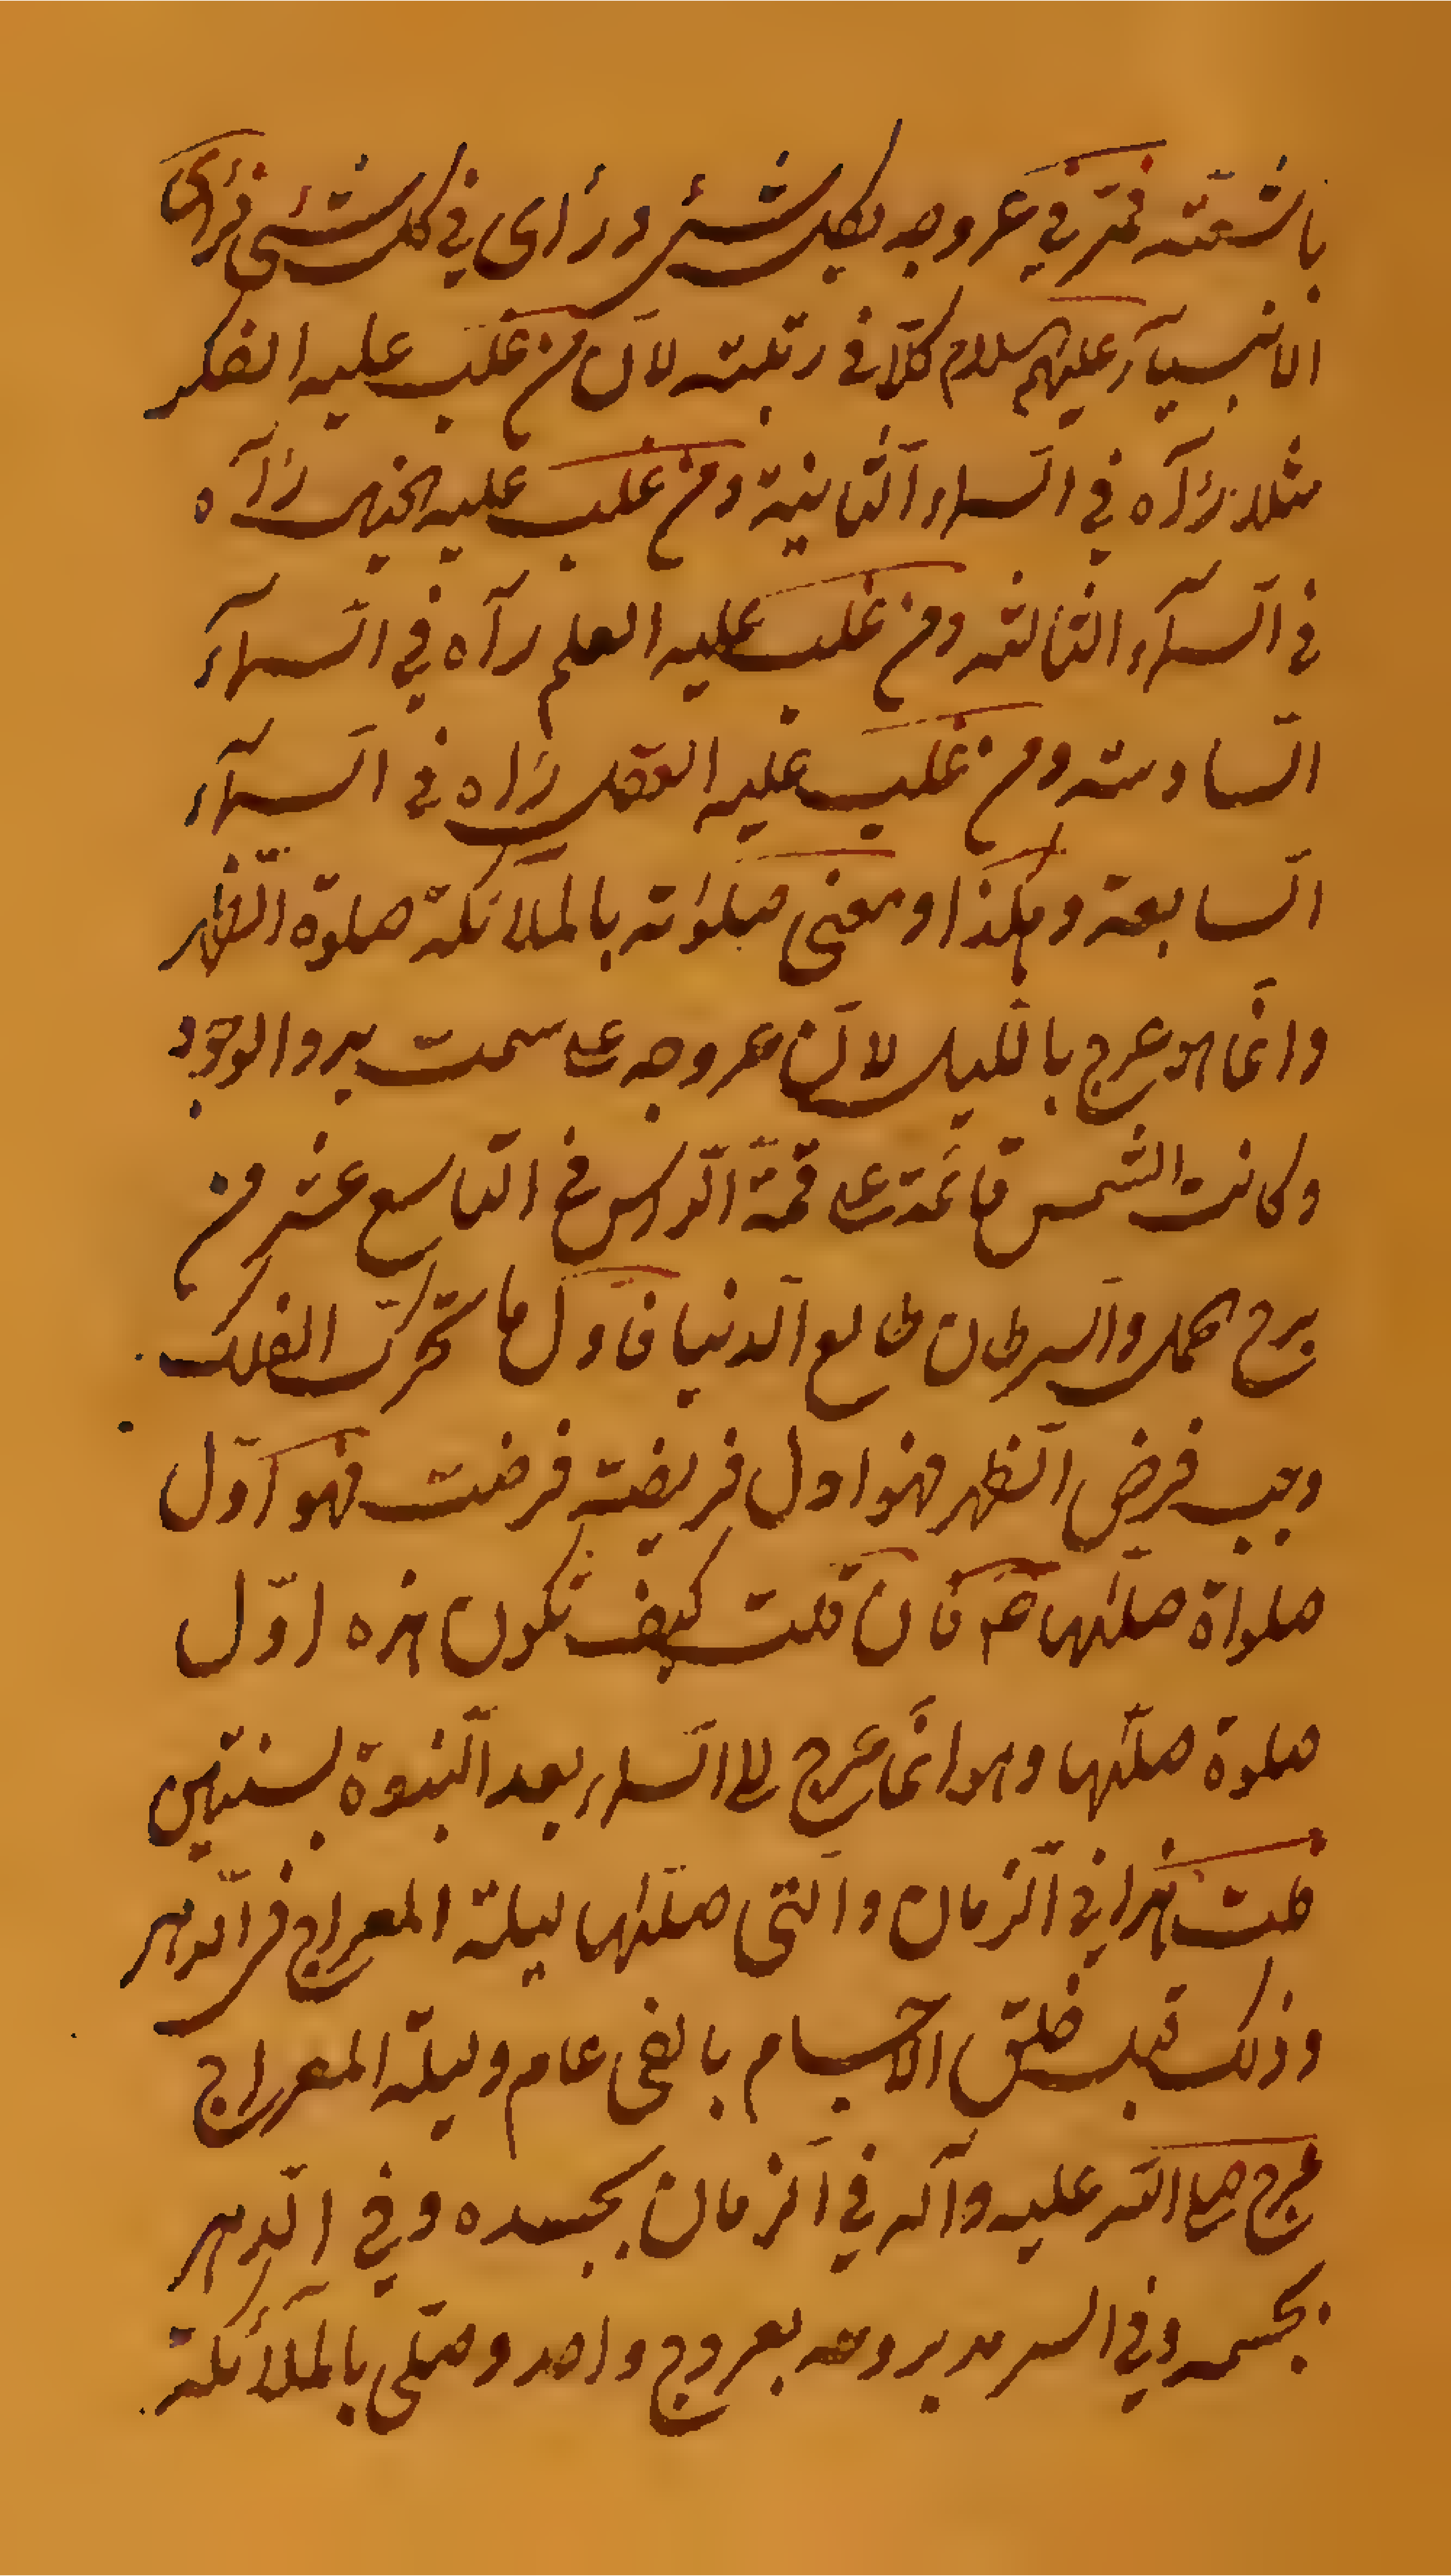 باشعته فمرّ في عروجه بكل شئ ورأى في كل شئ فرأى
الانبيآء عليهم السلام كلّا في رتبته لانّ من غلب عليه الفكر
مثلا رآه في السماء الثانية ومن غلب عليه الخيال رآه
في السمآء الثالثه ومن غلب عليه العلم رآه في السمآء
السادسته ومن غلب عليه العقل راه في السمآء
السابعة وهكذا ومعنى صلوته بالملائكة صلوة الظهر
وانّما هو عرج بالليل لانّ عروجه على سمت بدو الوجود
وكانت الشمس قائمة على قمّة الرّاس في التاسع عشر من
برج الحمل والسرطان طالع الدنيا فاوّل ما تحرّك الفلك
وجب فرض الظهر فهو اول فريضة فرضت فهو اوّل
صلواة صلّيها ص فان قلت كيف تكون هذه اوّل
صلوة صلّيها وهو انّما عرج الى السماء بعد النّبوة بسنتين
قلت هذا في الزمان والّتي صلّيها ليلة المعراج في الدّهر
وذلك قبل خلق الاجسام بالفى عام وليلة المعراج
عرج صلى الله عليه وآله في الزمان بجسده وفي الدّهر
بجسمه وفي السرمد بروحه بعروج واحد وصلّى بالملائكة